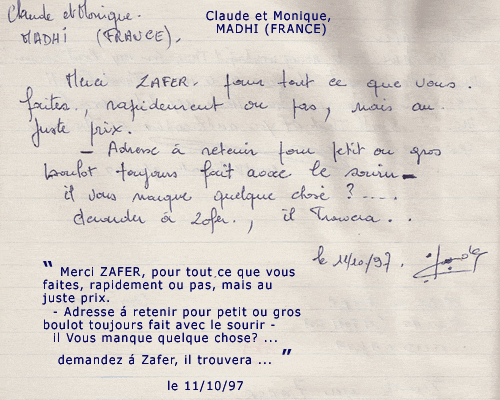 Claude et Monique.
MADHI (FRANCE).
Claude et Monique,
MADHI (FRANCE)
Merci ZAFER. pour tout ce que vous.
faites, rapidement ou pas, mais au
juste prix.
- Adresse á retenir pour petit ou gros
boulot toujours fait avec le sourir -
il vous manque quelque chose ? ....
demander á Zafer., il trouvera . .
le 11/10/97.
“ Merci ZAFER, pour tout ce que vous
faites, rapidement ou pas, mais au
juste prix.
- Adresse á retenir pour petit ou gros
boulot toujours fait avec le sourir -
il Vous manque quelque chose? ...
demandez á Zafer, il trouvera ... ”
le 11/10/97